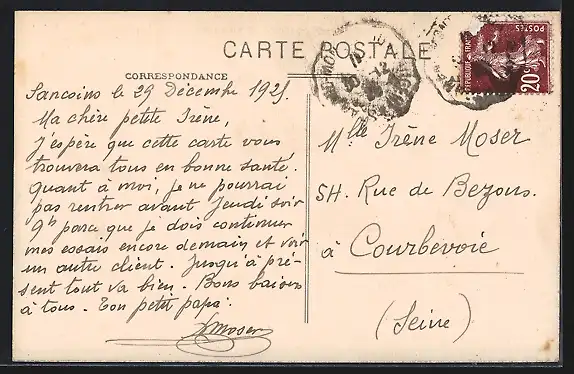 CARTE POSTALE
CORRESPONDANCE
Sancoins le 29 Décembre 1925.
Ma chère petite Irène,
J'espère que cette carte vous
trouvera tous en bonne santé.
Quant à moi, je ne pourrai
pas rentrer avant Jeudi soir
9h parce que je dois continuer
mes essais encore demain et voir
un autre client. Jusqu'à pré-
sent tout va bien. Bons baisers
à tous. Ton petit papa.
Moser
Mlle Irène Moser
54. Rue de Bezons.
à Courbevoie
(Seine)
POSTES
REPUBLIQUE FRANÇAISE
20c